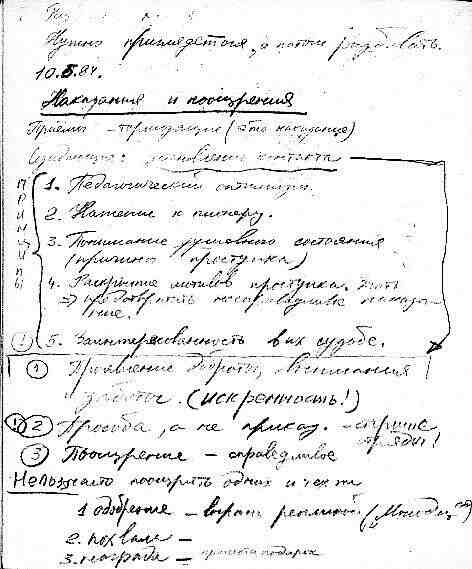 Нужно приглядеться, а потом разбивать.
10.5.84.
Наказания и поощрения
Приёмы – тормозящие (это наказание)
Созидающие: установление контакта
ПРИНЦИПЫ
1. Педагогический оптимизм.
2. к пионеру.
3. Понимание душевного состояния
(причины проступка)
4. Раскрытие мотивов проступка. Знать
⇒ предотвратить несправедливое наказа-
ние.
! 5. Заинтересованность в их судьбе.
1 Проявление доброты, внимания
и заботы. (искренность!)
! 2 Просьба, а не приказ. – старшие
отряды!
3 Поощрение – справедливое
Нельзя поощрять одних и тех же
1 одобрение – вырази репликой (Молодец)
2. похвала –
3. награда – подарок